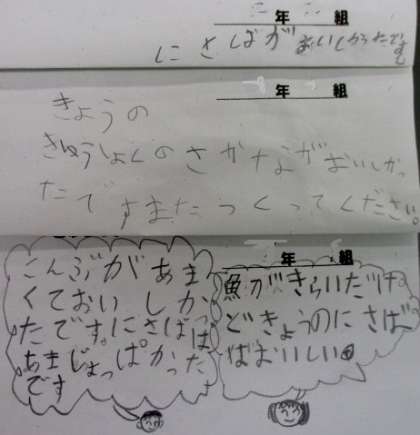 年 組
にさばがおいしかったです
年 組
きょうの
きゅうしょくのさかながおいしかっ
たですまたつくってください。
年 組
こんぶがあま
くておいしかっ
たです。にさばは
あまじょっぱかった
です
魚がきらいだけ
どきょうのにさば
ばおいしい